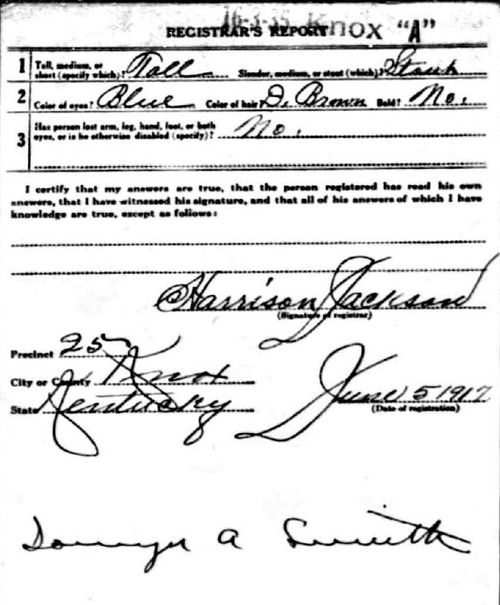 16-3-35. Knox "A"
REGISTRAR'S REPORT
1 Tall, medium, or short (specify which)? Tall Slender, medium, or stout (which)? Stout
2 Color of eyes? Blue Color of hair? D. Brown Bald? No.
3 Has person lost arm, leg, hand, foot, or both
eyes, or is he otherwise disabled (specify)? No.
I certify that my answers are true, that the person registered has read his own
answers, that I have witnessed his signature, and that all of his answers of which I have
knowledge are true, except as follows:
Harrison Jackson
(Signature of registrar)
Precinct 25
City or County Knox
State Kentucky
June 5 1917
(Date of registration)
A Smith